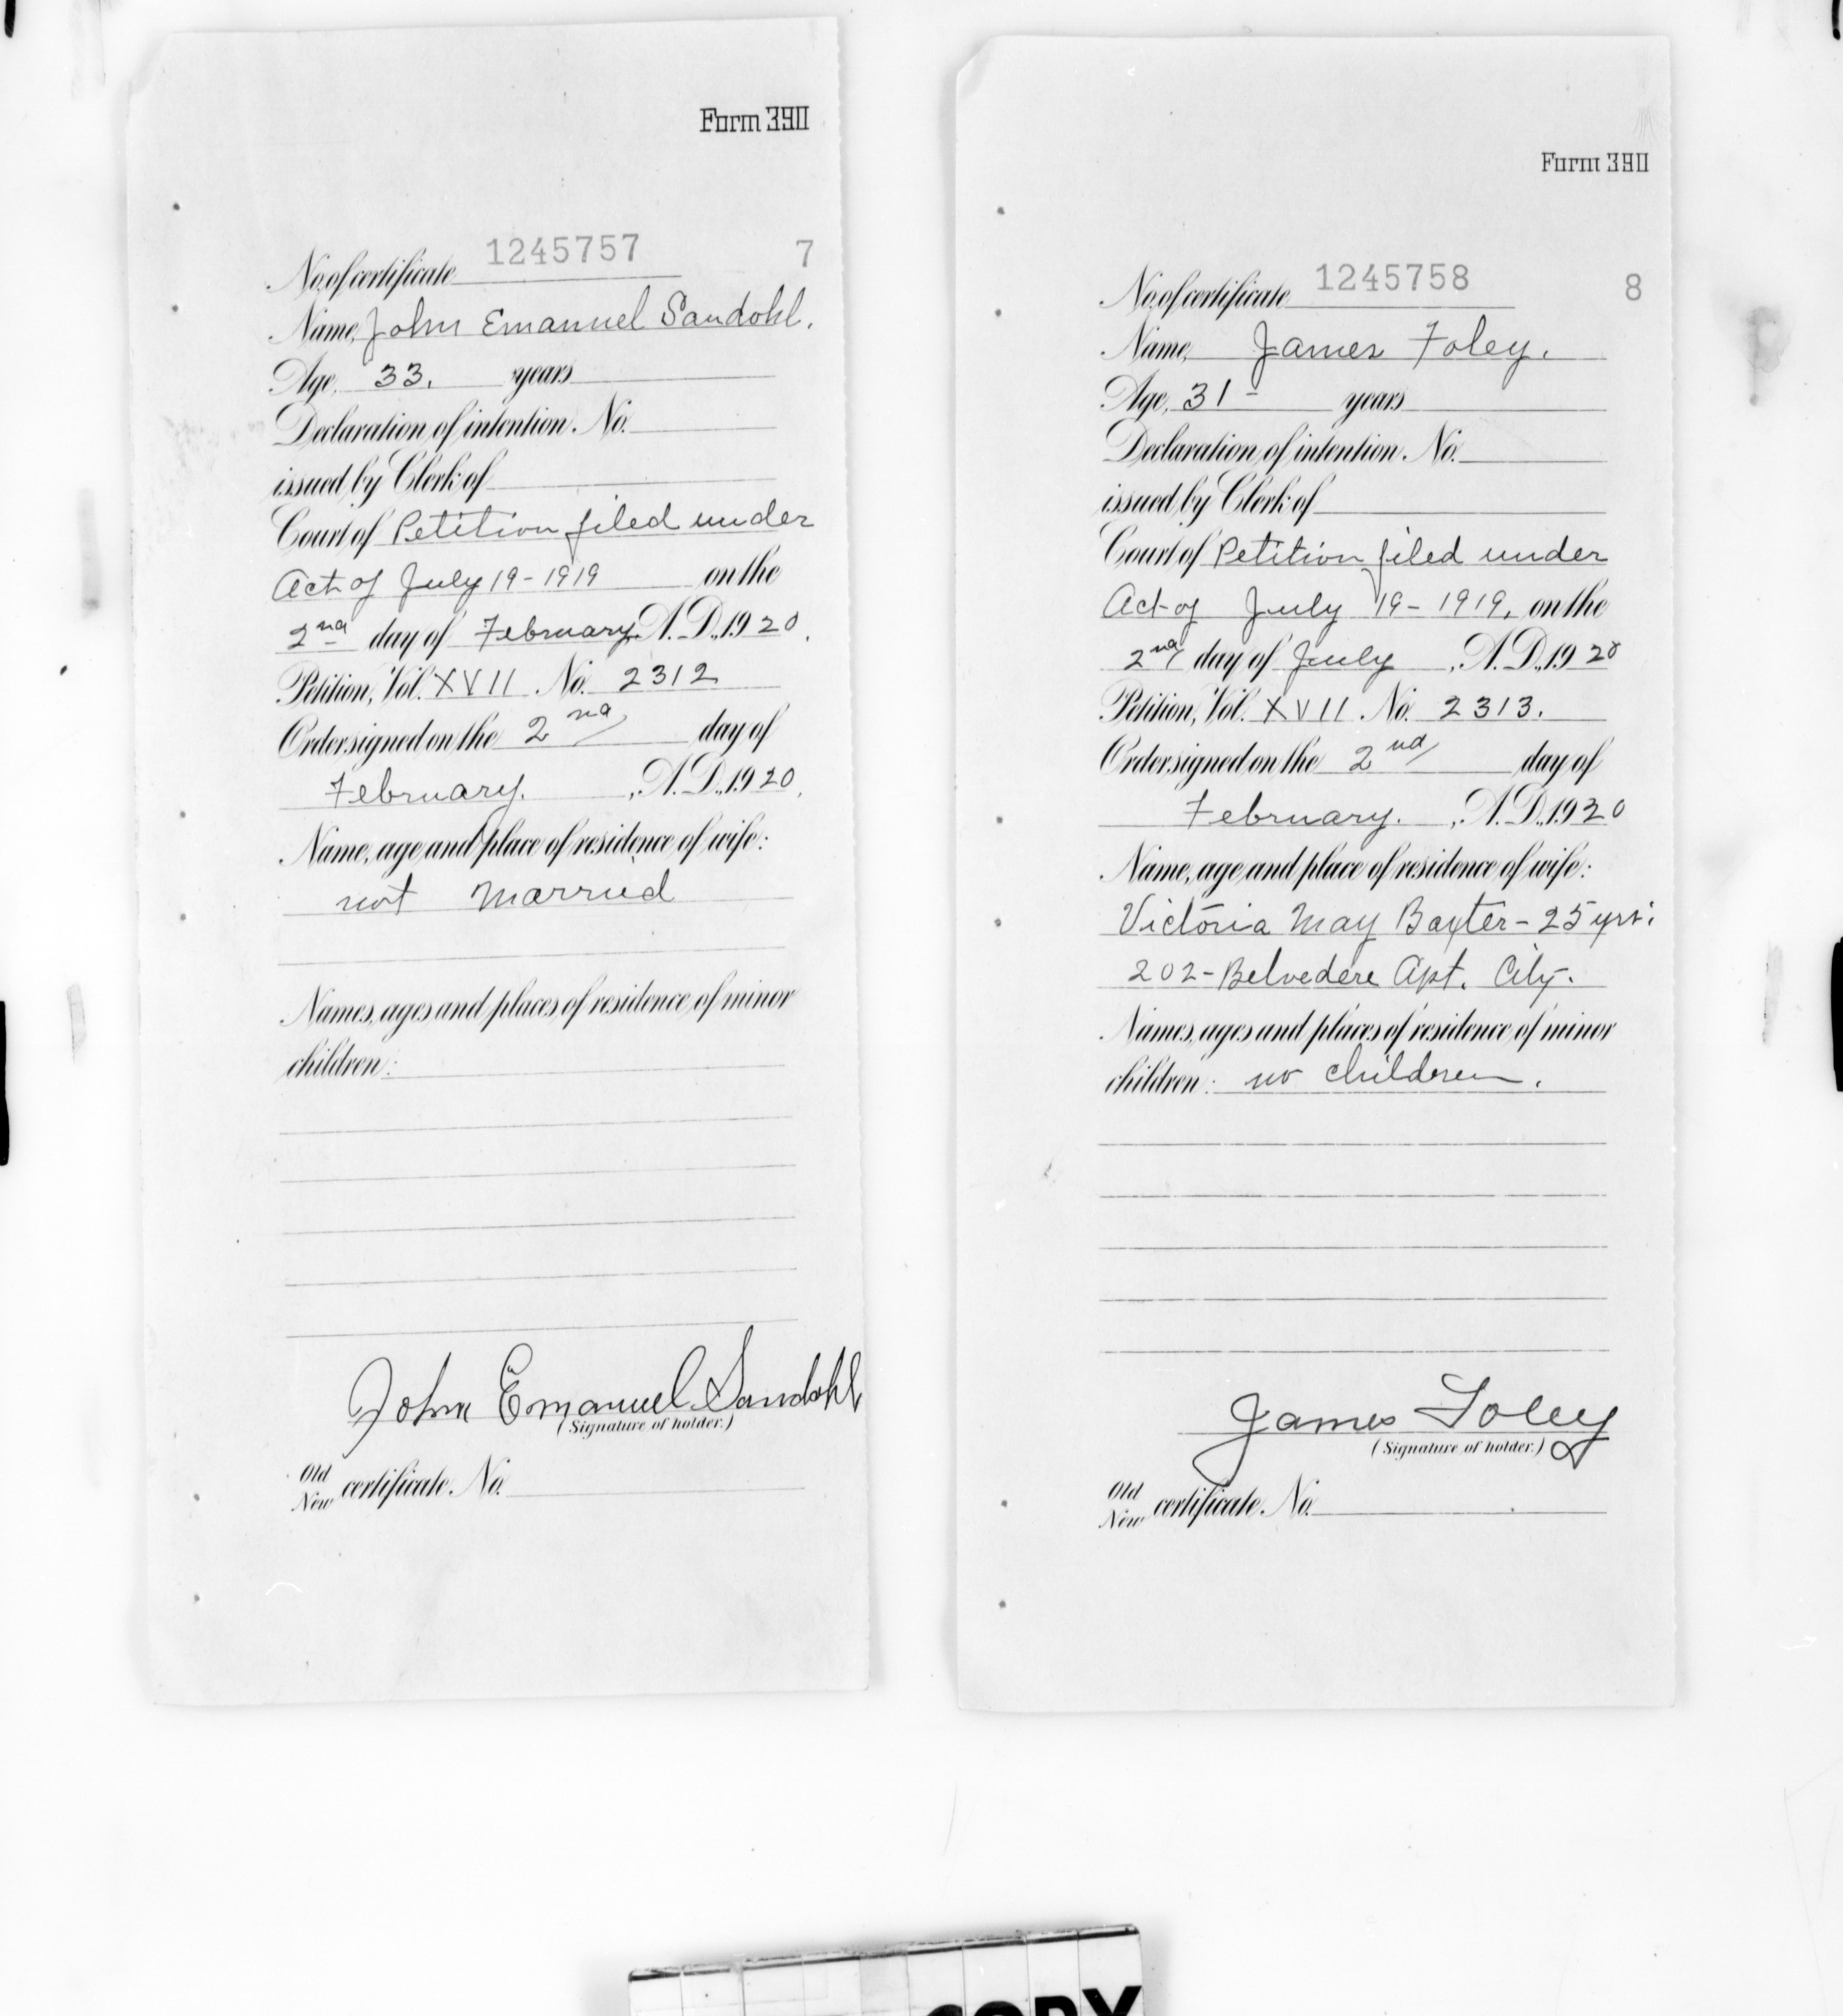 Form 390
No. of certificate 1245757 7
Name, John Emanuel Sandohl.
Age, 33. years
Declaration of intention. No.
issued by Clerk of
Court of Petition filed under
Act of July 19 - 1919 on the
2nd day of February, A.D., 1920.
Petition, Vol. XVII No. 2312
Order signed on the 2nd day of
February. , A.D., 1920.
Name, age and place of residence of wife:
not Married
Names, ages and places of residence of minor
children:
John Emanuel Sandohl
(Signature of holder.)
Old
New certificate. No.
Form 390
No. of certificate 1245758 8
Name, James Foley.
Age, 31 - years
Declaration of intention. No.
issued by Clerk of
Court of Petition filed under
Act of July 19 - 1919, on the
2nd day of July , A.D., 1920
Petition, Vol. XVII. No. 2313.
Order signed on the 2nd day of
February. , A.D., 1920
Name, age and place of residence of wife:
Victoria May Baxter - 25 yrs:
202 - Belvedere Apt. City.
Names, ages and places of residence of minor
children: no children.
James Foley
(Signature of holder.)
Old
New certificate. No.
COPY